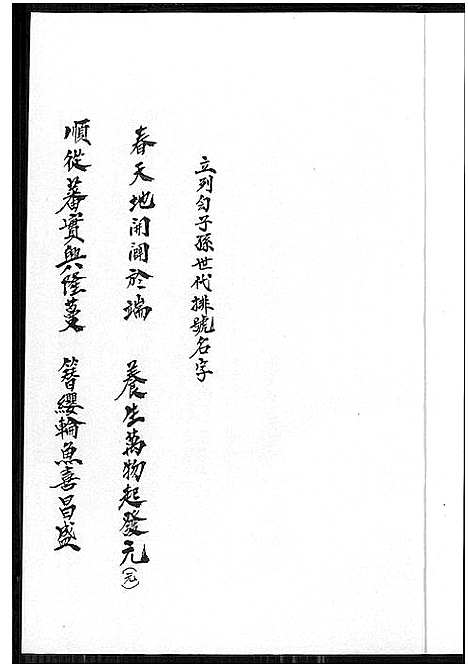 立列勻子孫世代排號名字
春天地開闢於端 養生萬物起發元(元)
順從蕃實興隆蔓 簪纓輪魚喜昌盛